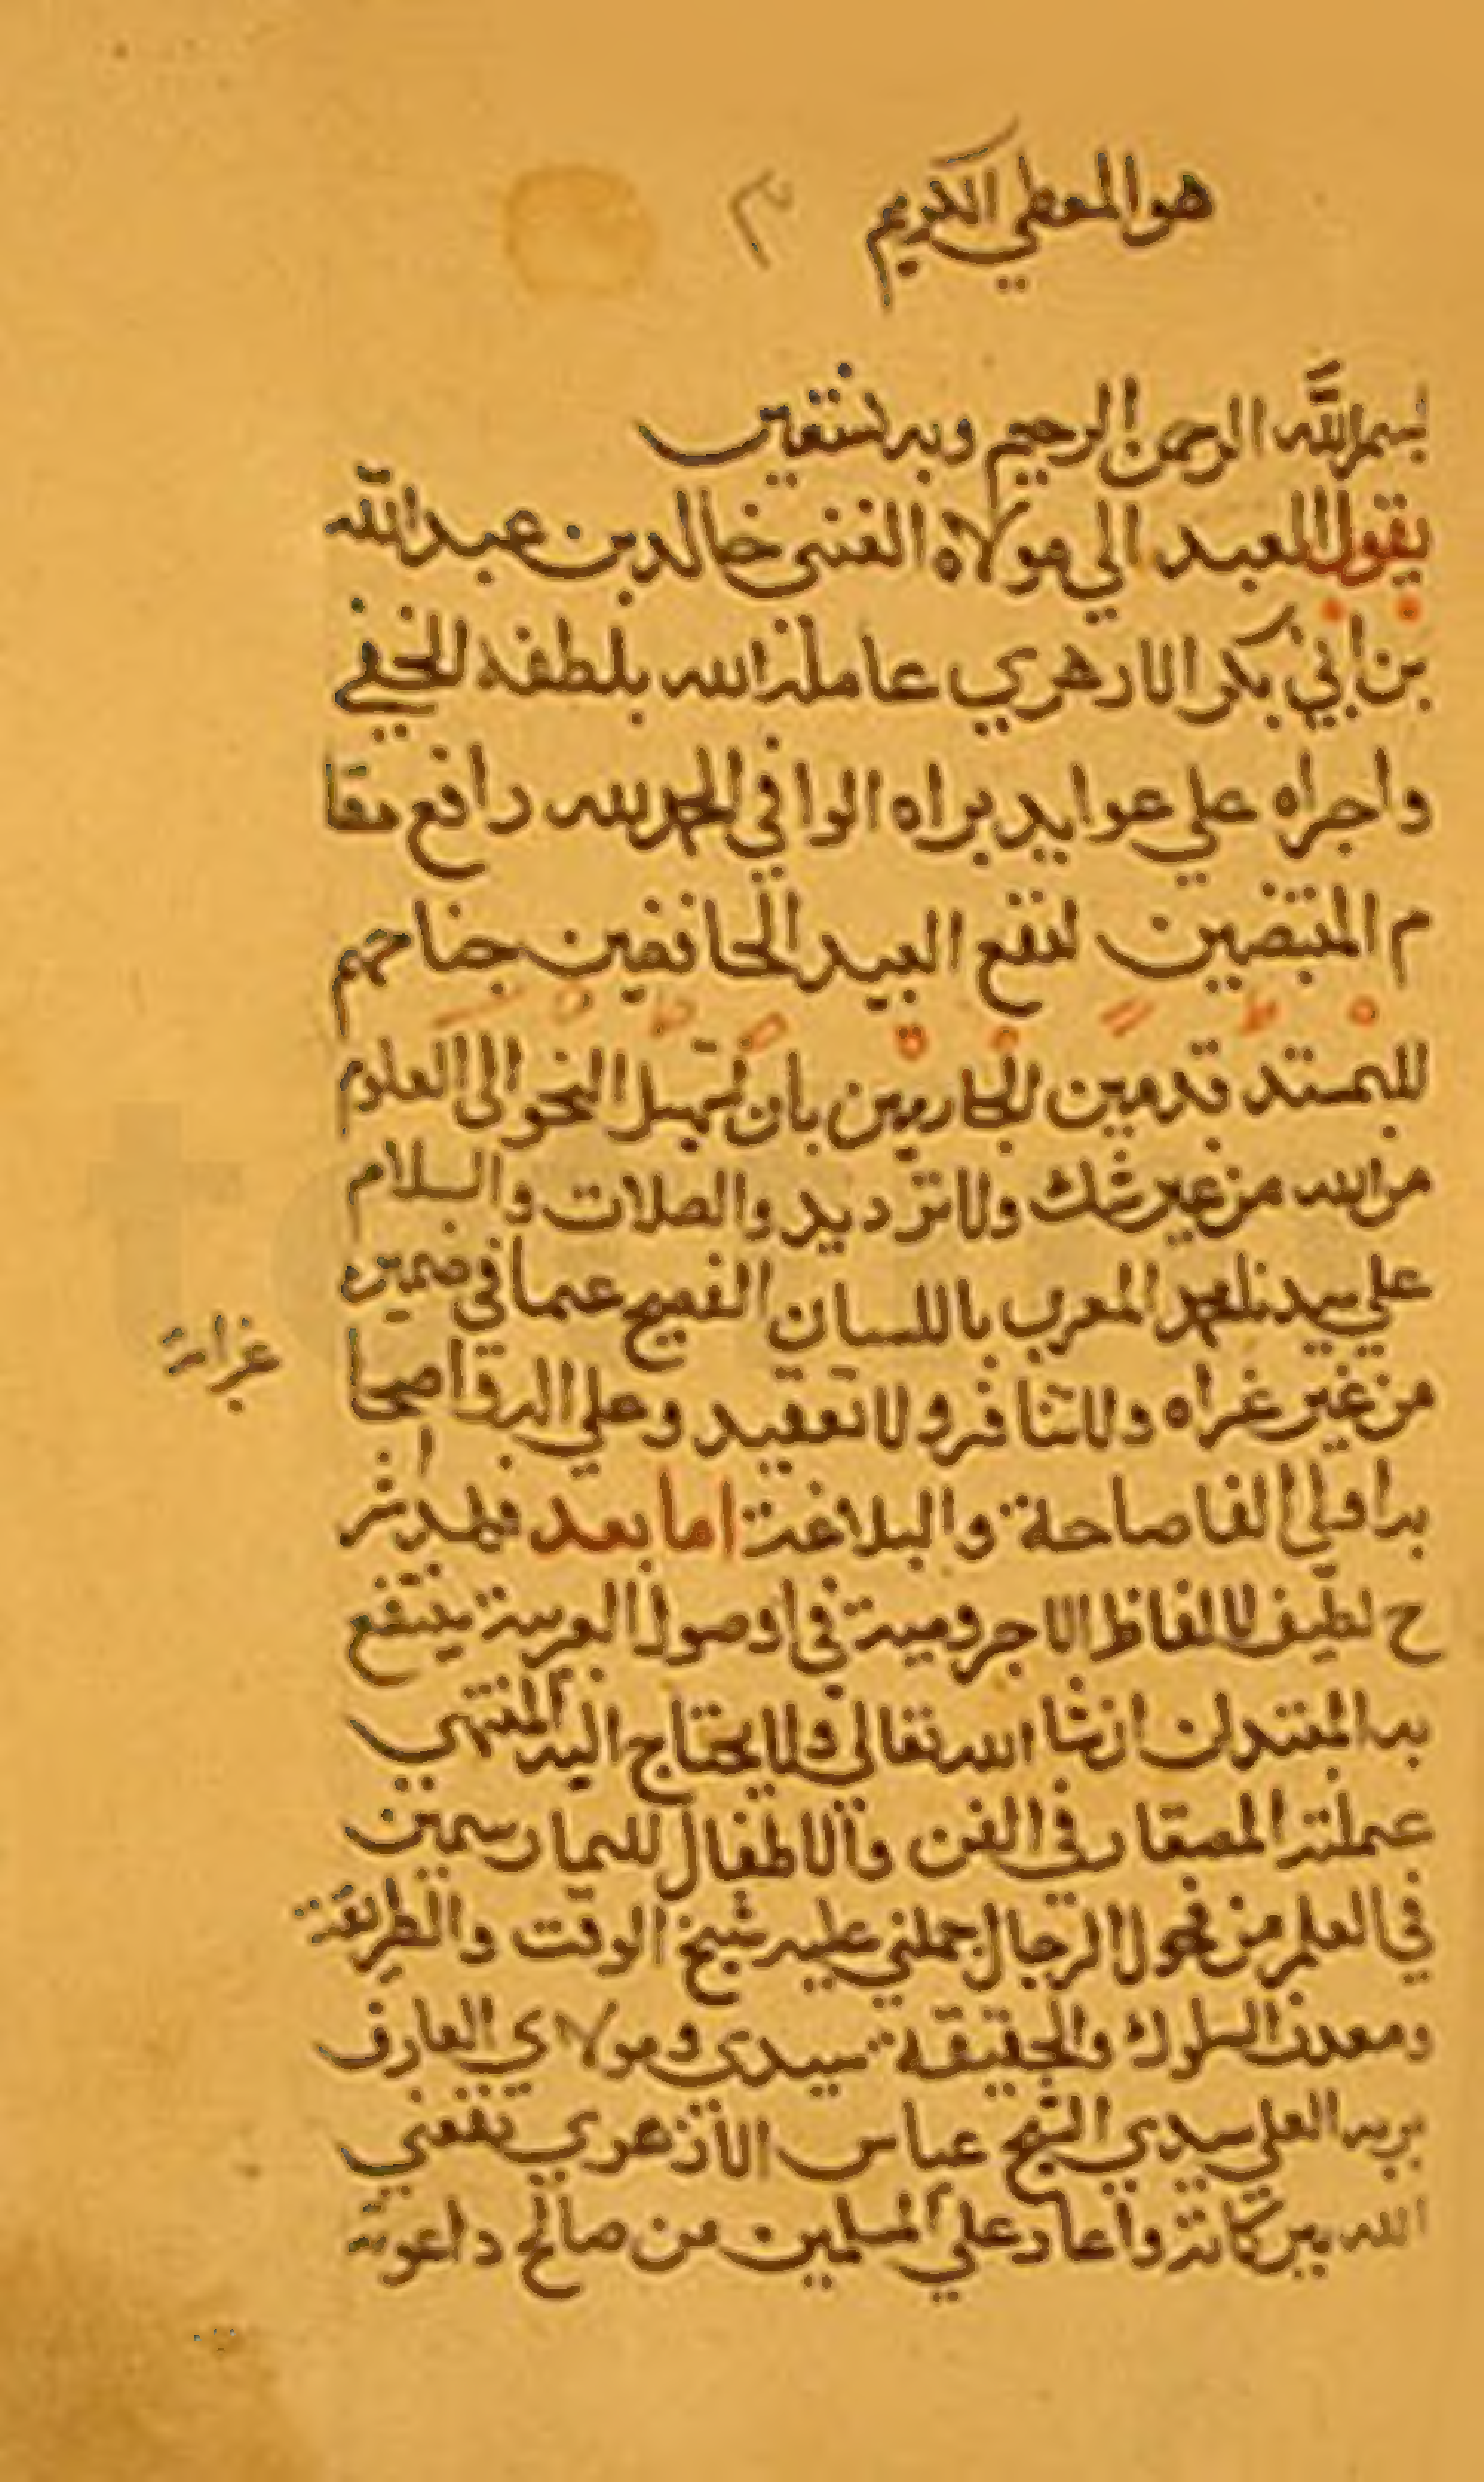 هو المعطي الكريم
بسم الله الرحمن الرحيم وبه نستعين
يقول العبد الي مولاه الغني خالد بن عبد الله
بن ابي بكر الازهري عامله الله بلطفه الخفي
واجراه علي عوايد براه الوافي الحمد لله رافع مقا
م المنتصبين لنفع العبيد الخافضين جناحهم
للمستد قدمين بان تسهيل النحو الى العلوم
من الله من غير شك ولا ترديد والصلات والسلام
علي سيدنا محمد المعرب باللسان الفصيح عما في ضميره
من غير غراه ولا تنافر ولا تعقيد وعلي اله واصحا
به اولي الفاصاحة والبلاغت اما بعد فهذ شر
ح لطيف لالفاظ الاجرومية في اوصول العربية ينتفع
به المبتدي ان شا الله تعالي ولا يحتاج اليه المنتهي
عملته للصغار في الفن والاطفال للممارسين
في العلم من فحول الرجال حملني عليه شيخ الوقت والطريقة
ومعدن السلوك والحقيقة سيدي ومولاي العارف
بربه العلي سيدي عباس الازهري نفعني
الله ببركاته واعاد علي المسلمين من صالح داعوته
غرابة